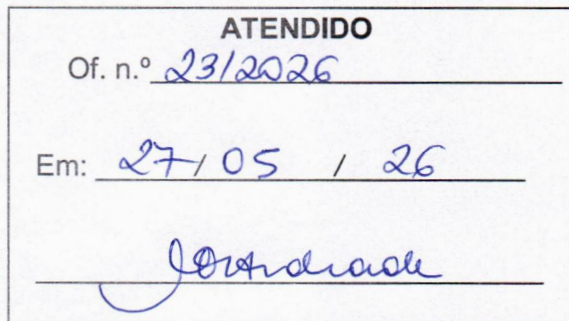 ATENDIDO
Of. n.º 23/2026
Em: 27/ 05 / 26